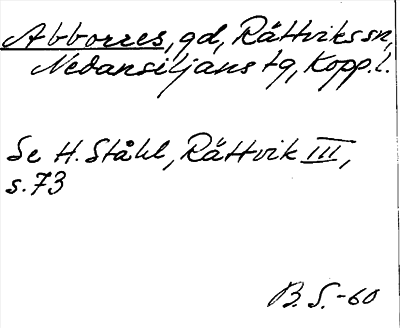 Abborres, gd, Rättviks sn,
Nedansiljans tg, Kopp.l.
Se H. Ståhl, Rättvik III,
s. 73
B. S. -60